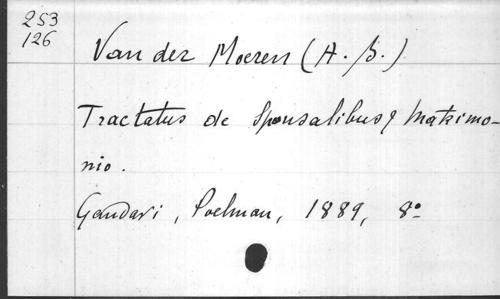 253
126
Van der Moeren (A. B.)
Tractatus de Sponsalibus & Matrimo-
nio.
Gandavi, Poelman, 1889, 8°